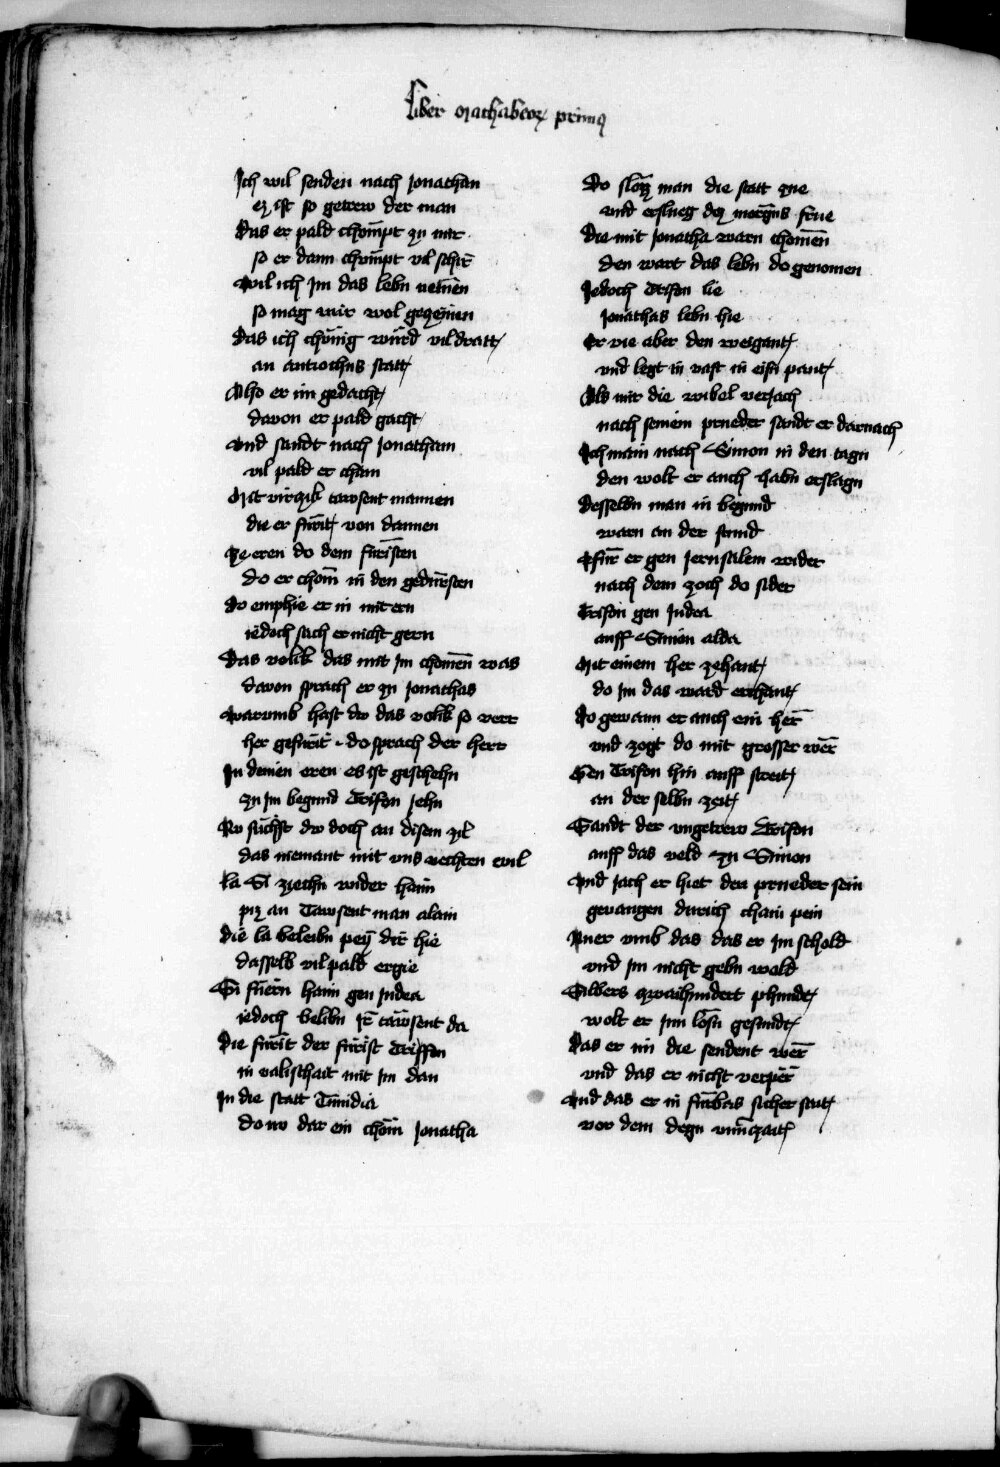 Liber Machabeorum primus
Ich wil senden nach Jonathan
ez ist so getrew der man
Das er pald chömpt zu mir
so er dann chömpt vil schir
Wil ich Im das lebn nemen
so mag mir wol gezemen
Das ich chönig würd vil dratt
an antiochus statt
Also er im gedacht
davon er pald gacht
Vnd sandt nach Jonatham
vil pald er cham
Mit virczik tawsent mannen
die er fürt von dannen
Ze eren do dem fürsten
do er chom in den gedürsten
Do emphie er in mit ern
iedoch sach er nicht gern
Das volik das mit Im chomen was
davon sprach er zu Jonathas
Warumb hast dw das volik so verr
her gefürt do sprach der herr
In deinen eren es ist geschehn
zu Im begund Trifon Jehn
Nv süchst dw doch an disem zil
das niemant mit vns vechten wil
La Si ziechn wider haim
piz an Tawsent man alain
Die la beleibn pey dir hie
dasselb vil pald ergie
Si füern haim gen Judea
iedoch belibn Ir tawsent da
Die fürt der fürst Triffon
in valischait mit Im dan
In die statt Timidia
do nv dar ein chom Jonatha
Do sloz man die statt zue
vnd erslueg dez morgns frue
Die mit Jonatha warn chomen
den wart das lebn do genomen
Jedoch Trifon lie
Jonathas lebn hie
Er vie aber den weigant
vnd legt in vast in eisn pant
Als mir die wibel verjach
nach seinem prueder sandt er darnach
Ich main nach Simon in den tagn
den wolt er auch habn erslagn
desselbn man in begund
warn an der stund
Pfur er gen Jerusalem wider
nach dem zoch do sider
Trifon gen Judea
auff Simon alda
Mit einem her zehant
do Im das ward erchant
Do gewann er auch ein her
vnd zogt do mit grosser wer
Gen Trifon hin auff streit
an der selbn zeit
Sandt der vngetrew Trifon
auff das veld zu Simon
Vnd Jach er hiet den prueder sein
gevangen durich chain pein
Nuer vmb das das er Im schold
vnd Im nicht gebn wold
Silbers zwaihundert phundt
wolt er Inn losn gesundt
Das er im die sendent wer
vnd das er nicht verper
Vnd das er in fürbas sicher sait
vor dem degn vnuerzait